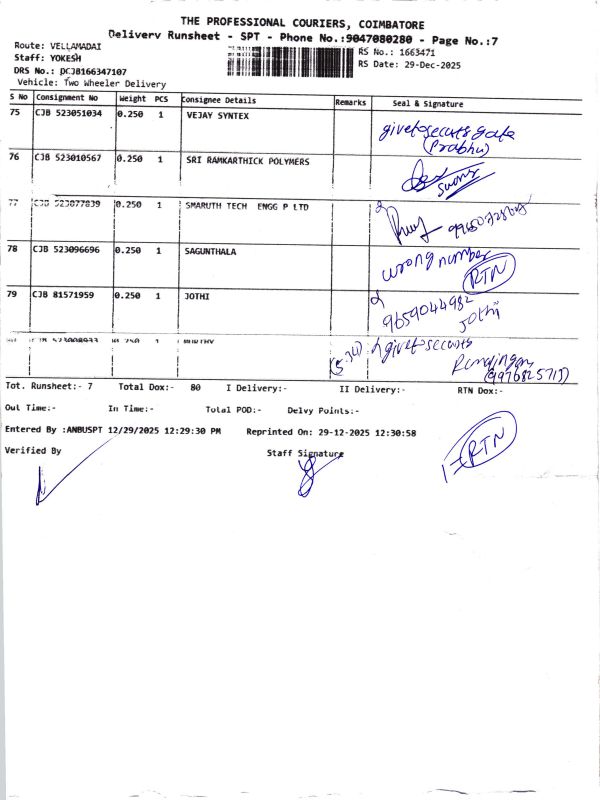 THE PROFESSIONAL COURIERS, COIMBATORE
Delivery Runsheet - SPT - Phone No.:9047080280 - Page No.:7
Route: VELLAMADAI
Staff: YOKESH
DRS No.: DCJB166347107
Vehicle: Two Wheeler Delivery
RS No.: 1663471
RS Date: 29-Dec-2025
S No Consignment No Weight PCS Consignee Details Remarks Seal & Signature
75 CJB 523051034 0.250 1 VEJAY SYNTEX
(Prabhu)
76 CJB 523010567 0.250 1 SRI RAMKARTHICK POLYMERS
77 CJB 523077839 0.250 1 SMARUTH TECH ENGG P LTD
78 CJB 523096696 0.250 1 SAGUNTHALA
wrong number
RTN
79 CJB 81571959 0.250 1 JOTHI
9659044982
Jothi
MURTHY
Tot. Runsheet:- 7 Total Dox:- 80 I Delivery:- II Delivery:- RTN Dox:-
Out Time:- In Time:- Total POD:- Delvy Points:-
Entered By :ANBUSPT 12/29/2025 12:29:30 PM Reprinted On: 29-12-2025 12:30:58
Verified By Staff Signature
RTN